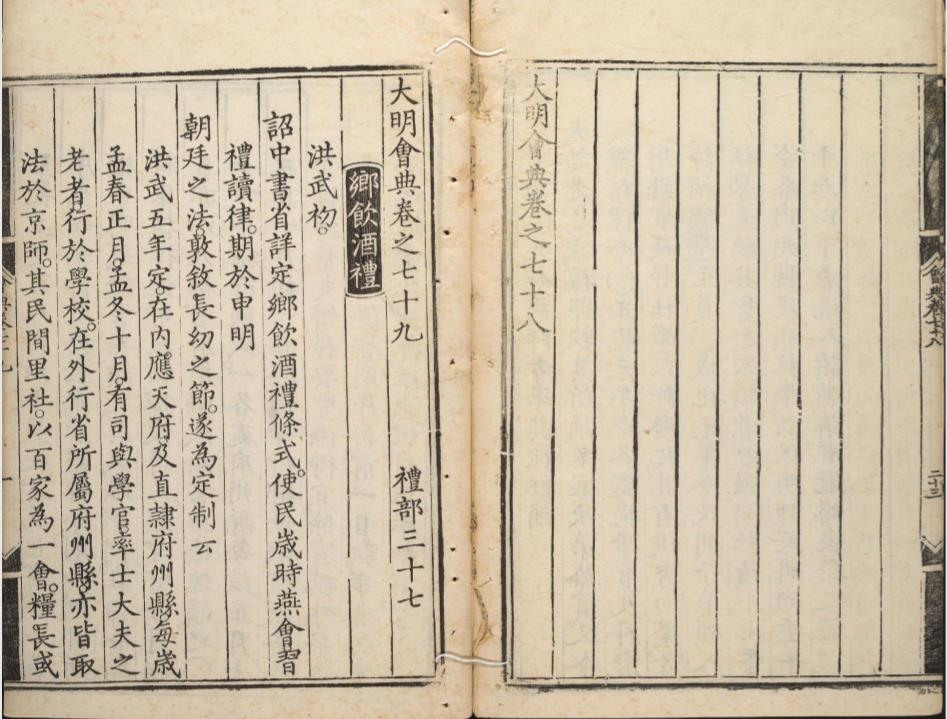 大明會典卷之七十八
大明會典卷之七十九
禮部三十七
鄉飲酒禮
洪武初。
詔中書省詳定鄉飲酒禮條式。使民歲時燕會習
禮讀律。期於申明
朝廷之法。敦敘長幼之節。遂為定制云
洪武五年定。在內應天府及直隸府州縣。每歲
孟春正月。孟冬十月。有司與學官。率士大夫之
老者。行於學校。在外行省所屬府州縣。亦皆取
法於京師。其民間里社。以百家為一會。糧長或